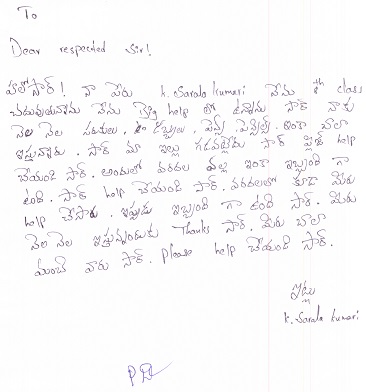 To
Dear respected Sir!
హలోసార్! నా పేరు K. Sarala kumari నేను 8th class
చదువుతున్నాను నేను Big help లో ఉన్నాను సార్ నాకు
నెల నెల సరుకులు, డబ్బులు, పెన్స్, పెన్సిల్స్. ఇంకా చాలా
ఇస్తున్నారు. సార్ మా ఇల్లు గడవట్లేదు సార్ ప్లీజ్ help
చేయండి సార్. అందులో వరదల వల్ల ఇంకా ఇబ్బంది గా
ఉంది. సార్ help చేయండి సార్. వరదలలో కూడా మీరు
help చేసారు. ఇప్పుడు ఇబ్బంది గా ఉంది సార్. మీరు
నెల నెల ఇస్తున్నందుకు Thanks సార్. మీరు చాలా
మంచి వారు సార్. Please help చేయండి సార్.
ఇట్లు
K. Sarala kumari